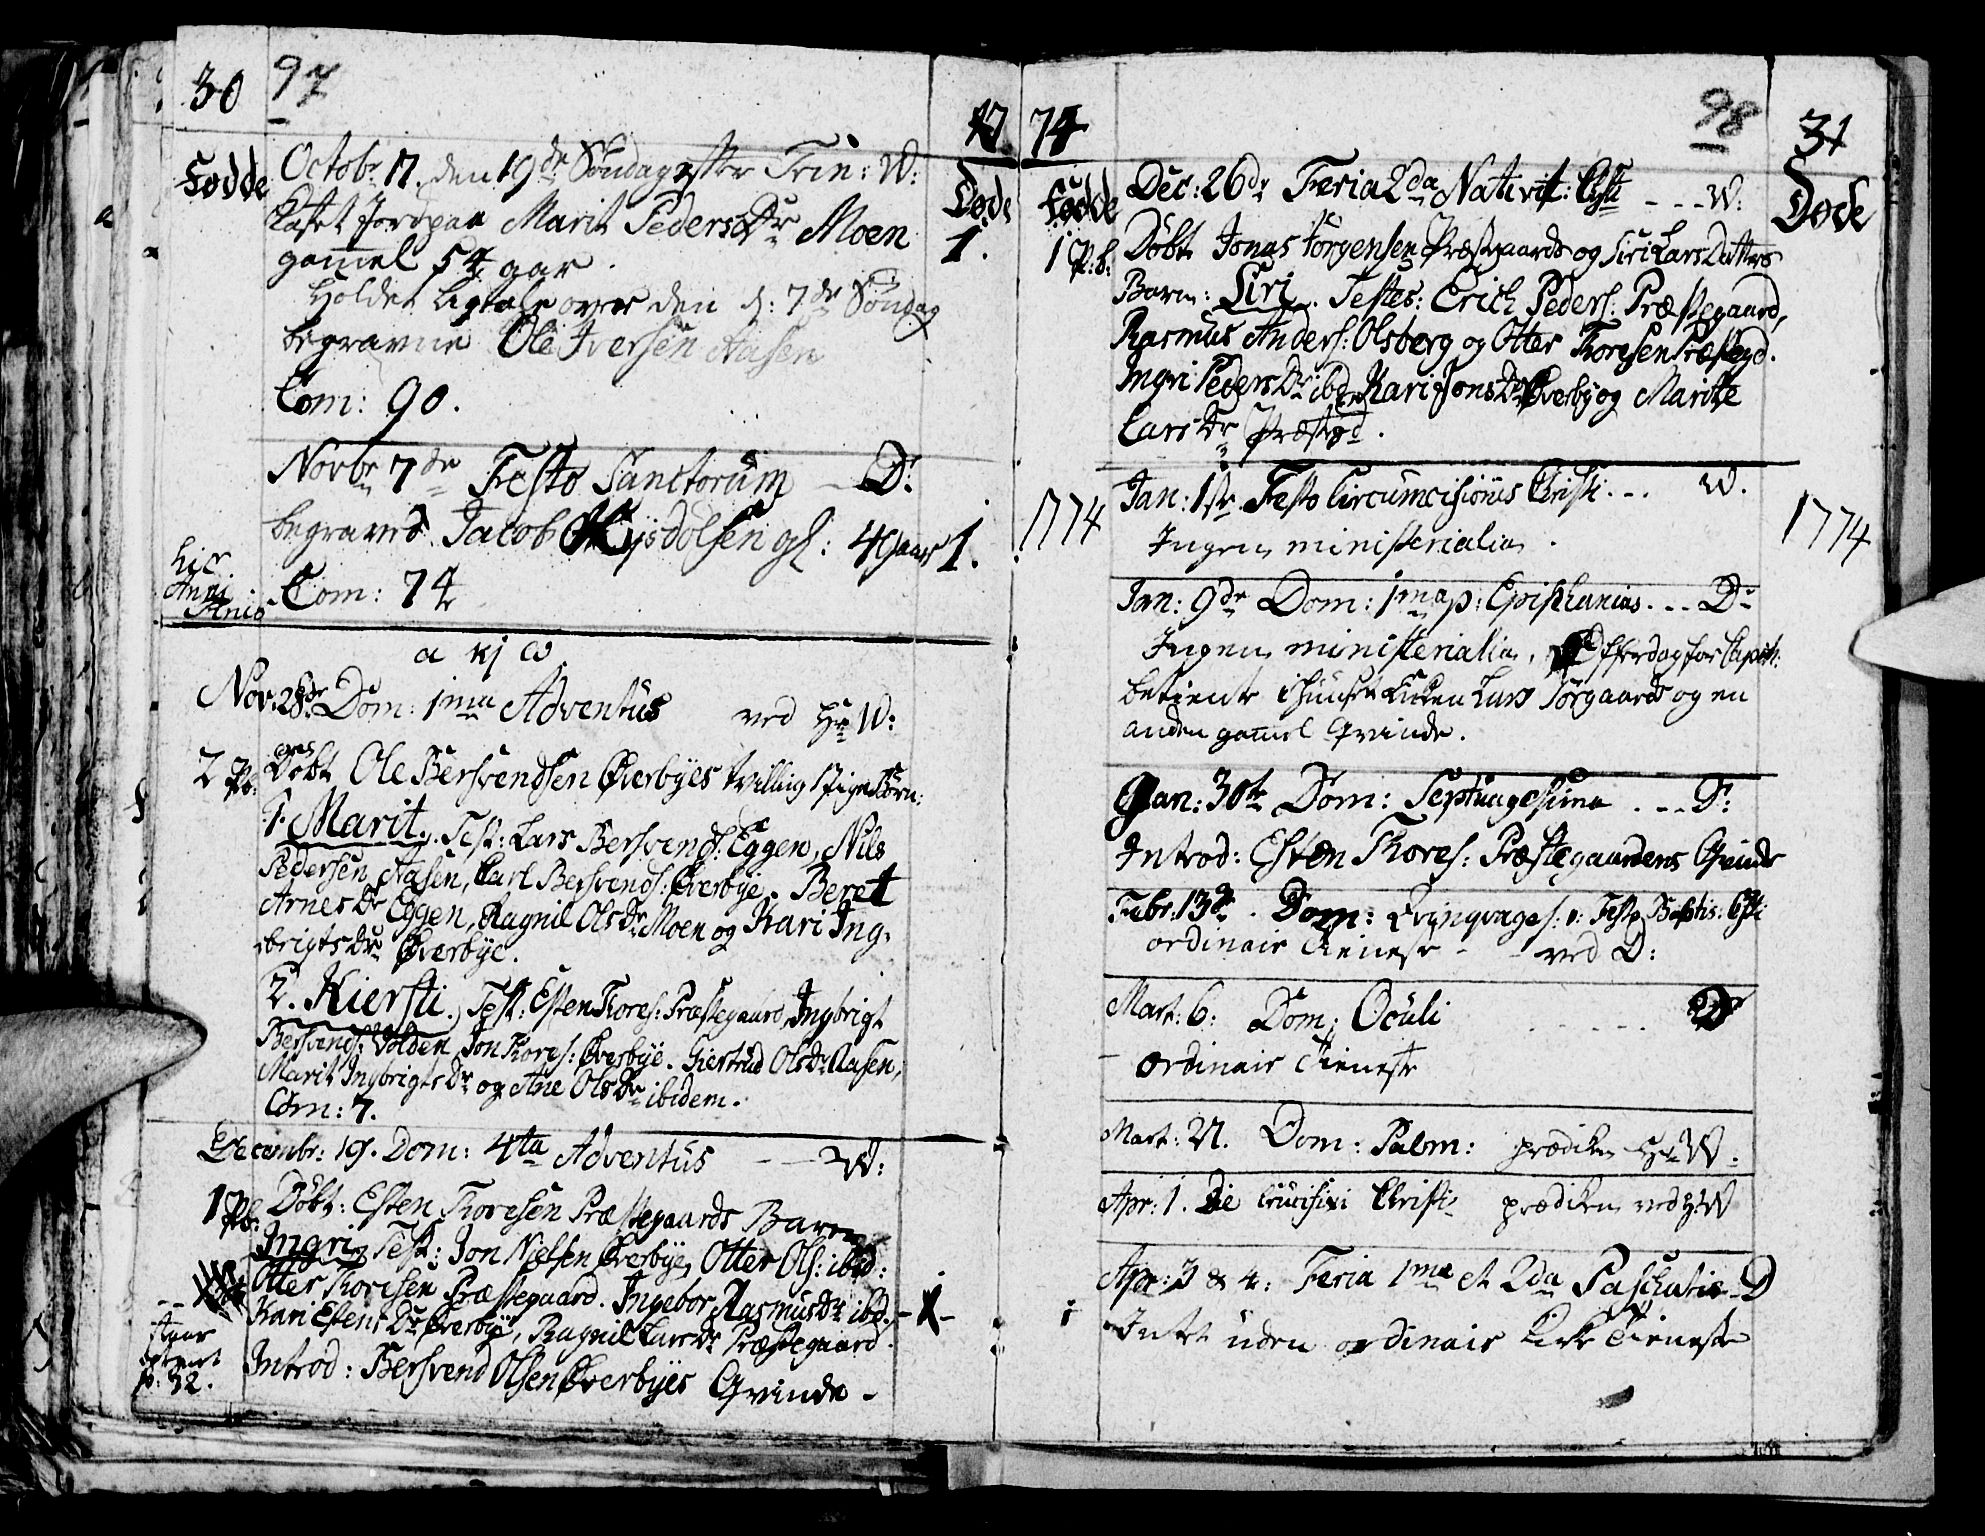 30 97
17
Fødde
Døde
Octobr 17. den 19de Søndag efter Trin: W:
Kastet Jord paa Marit PedersDr Moen
1.
gammel 54 aar.
Holdet Ligtale over den d: 7de Søndag
begravne Ole Iversen Aasen
Com: 90.
Novbr 7de Festo Sanctorum - D:
begraved Jacob gl: 4 aar 1.
hic
Anni
Com: 74
Nov: 28de Dom: 1ma Adventus ved Hr W:
2 Pb:
Døbt Ole Bersvendsen Øverbyes tvilling Pigebørn:
1. Marit. Test: Lars Bersvends: Eggen, Nils
Pedersen Aasen, Carl Bersvends: Øverbye. Beret
ArnesDr Eggen, Ragnil OlsDr Moen og Kari Ing-
brigtsDr Øverbye.
2. Kiersti. Test: Esten Thores: Præstegaard, Ingbrigt
Bersvends: Volden, Jon Thores: Øverbye. Giertrud OlsDr Aasen,
Marit IngbrigtsDr og Ane OlsDr ibidem.
Com: 7.
Decembr: 19. Dom: 4ta Adventus - - W:
1 Pb:
Døbt: Esten Thoresen Præstegaards Barn
Ingri, Test: Jon Nielsen Øverbye, Otter Ols: ibid:
Otter Thoresen Præstegaard. Ingebor RasmusDr ibd.
Kari EstensDr Øverbye, Ragnil LarsDr Præstegaard.
staar
p: 32.
Introd: Bersvend Olsen Øverbyes Qvinde -
74 98 31
Fødde
Døde
Dec: 26de Feria 2da Nativit: Chsti - - - W:
1 P:b:
Døbt Jonas Jørgensen Præstgaards og Siri LarsDatters
Barn: Siri. Testes: Erich Peders: Præstegaard,
Rasmus Anders: Olsberg og Otter Thoresen Præstegd.
Ingri PedersDr ibd, Kari JonsDr Øverby og Marite
LarsDr Præstgd.
1774
Jan: 1ste Festo Circumcisionis Christi - - - W.
1774
Ingen ministerialia.
Jan: 9de Dom: 1ma p: Epiphanias - - - D:
Ingen ministerialia, Offerdag for Capell:
betiente i huuset Enken Lars Jørgaards og en
anden gammel Qvinde.
Jan: 30te Dom: Septuagesima - - - D:
Introd: Esten Thores: Præstegaardens Qvinde
Febr: 13de. Dom: Qvinqvages: : Festo Baptis: Chsti
ordinair Tieneste - ved D:
Mart: 6: Dom: Oculi - - - - D
- Ordinair Tieneste
Mart: 27. Dom: Palm: prædiken Hr W:
Apr: 1. Die Crucifixi Christi prædiken ved Hr W
Apr: 3 & 4: Feria 1ma et 2da Paschatis - D
Intet uden ordinair Kirke Tieneste